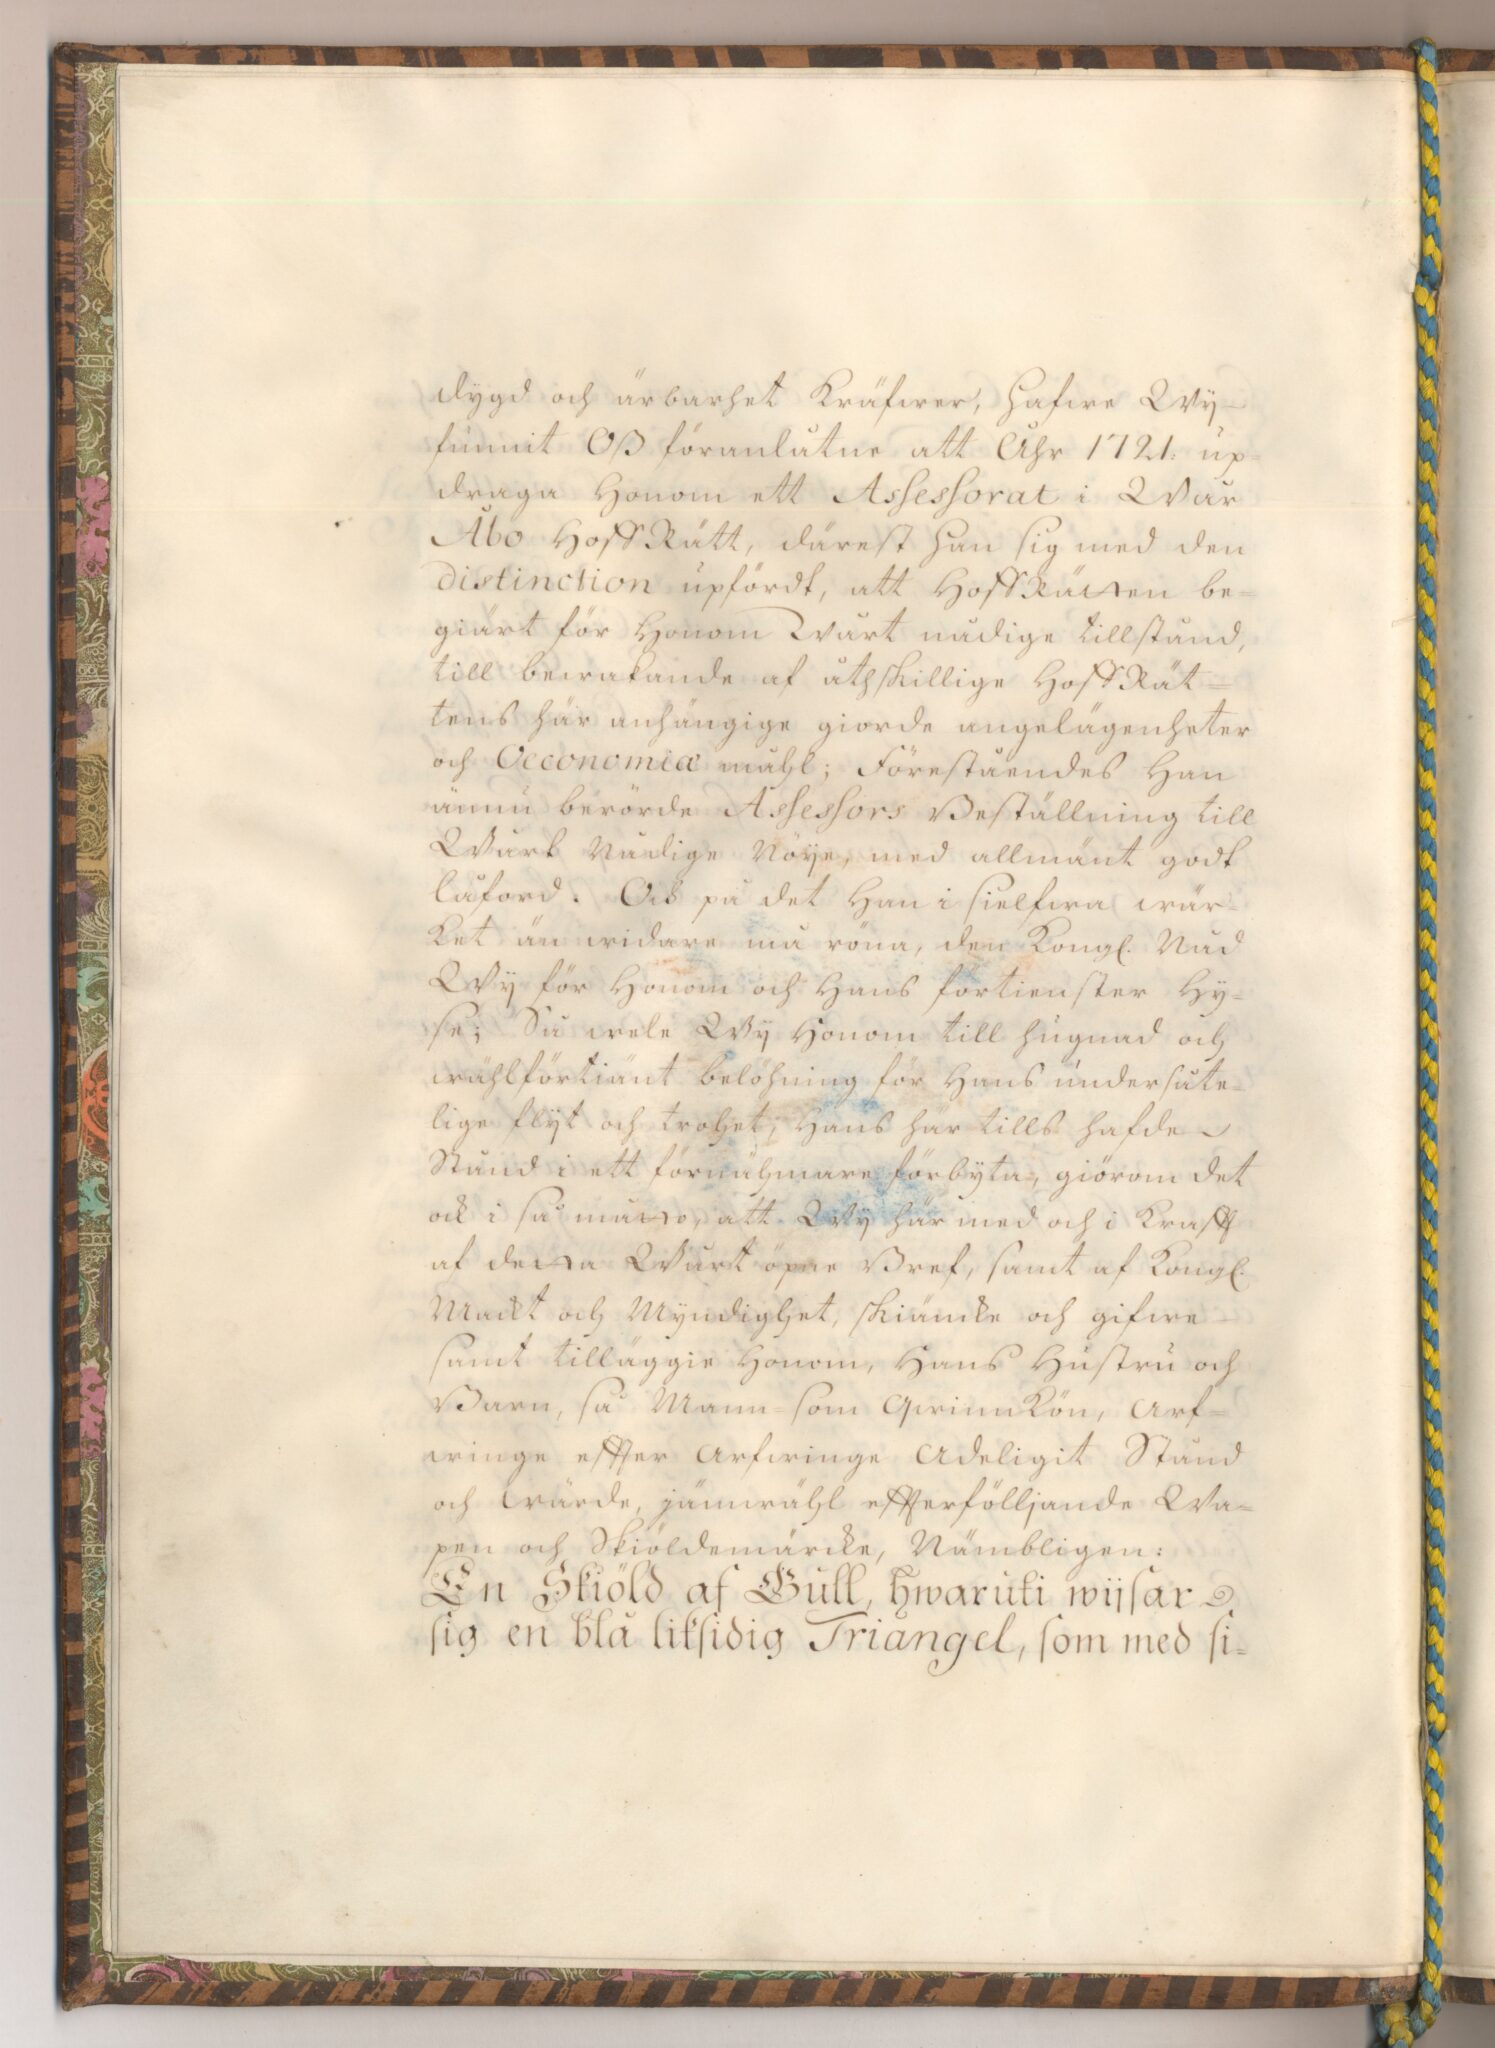 dygd och ärbarhet kräfwer, hafwe Wy
funnit Oß föranlåtne att Åhr 1721. up-
draga Honom ett Assessorat i Wår
Åbo HoffRätt, därest han sig med den
distinction upfördt, att HoffRätten be-
giärt för Honom Wårt nådige tillstånd,
till bewakande af åthskillige HoffRät=
tens här anhängige giorde angelägenheter
och Oeconomiæ måhl; Föreståendes Han
ännu berörde Assessors Beställning till
Wårt Nådige Nöye, med allmänt godt
låford. Och på det Han i sielfwa wär-
ket än widare må röna, den Kongl. Nåd
Wy för Honom och Hans förtienster Hy-
se; Så wele Wy Honom till hugnad och
wählförtiänt belöhning för Hans undersåte-
lige flijt och troohet, Hans här tills hafde
Stånd i ett förnähmare förbyta, giörom det
ock i så måtto, att Wy här med och i Krafft
af detta Wårt öpne Bref, samt af Kongl.
Mackt och Myndighet, skiäncke och gifwe
samt tilläggie Honom, Hans Hustru och
Barn, så Mann= som QwinnKön, Arf=
winge effter Arfwinge Adeligit Stånd
och wärde, jämwähl effterfölljande Wa-
pen och Skiöldemärcke, Nämbligen:
En Skiöld af Gull, hwaruti wijsar
sig en blå liksidig Triangel, som med si-